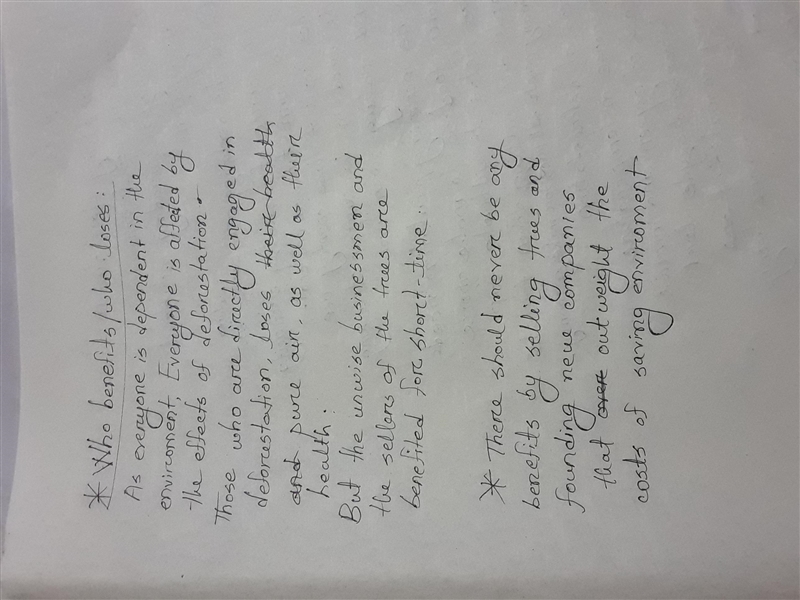 * Who benefits/who loses:
As everyone is dependent in the
enviroment, Everyone is affected by
the effects of deforestation.
Those who are directly engaged in
deforestation, loses their health
and pure air, as well as their
health.
But the unwise businessmen and
the sellers of the trues are
benefited for short-time.
* There should never be any
benefits by selling trues and
founding neue companies
that over outweight the
costs of saving enviroment